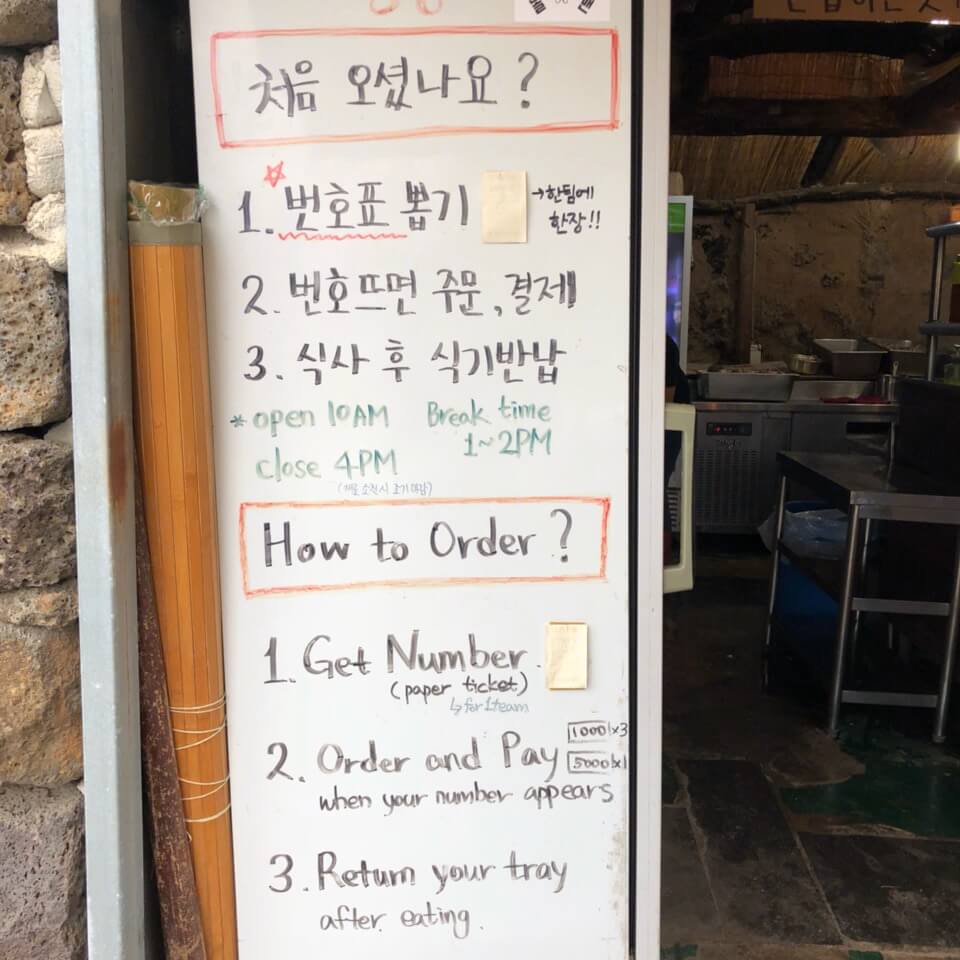 처음 오셨나요?
1. 번호표 뽑기
→한팀에
한장!!
2. 번호뜨면 주문, 결제
3. 식사 후 식기반납
*open 10AM Break time
1~2PM
close 4PM
(재료 소진시 조기마감)
How to Order?
1. Get Number.
(paper ticket)
↳for 1team
2. Order and Pay
1000 x3
5000 x1
when your number appears
3. Return your tray
after eating.